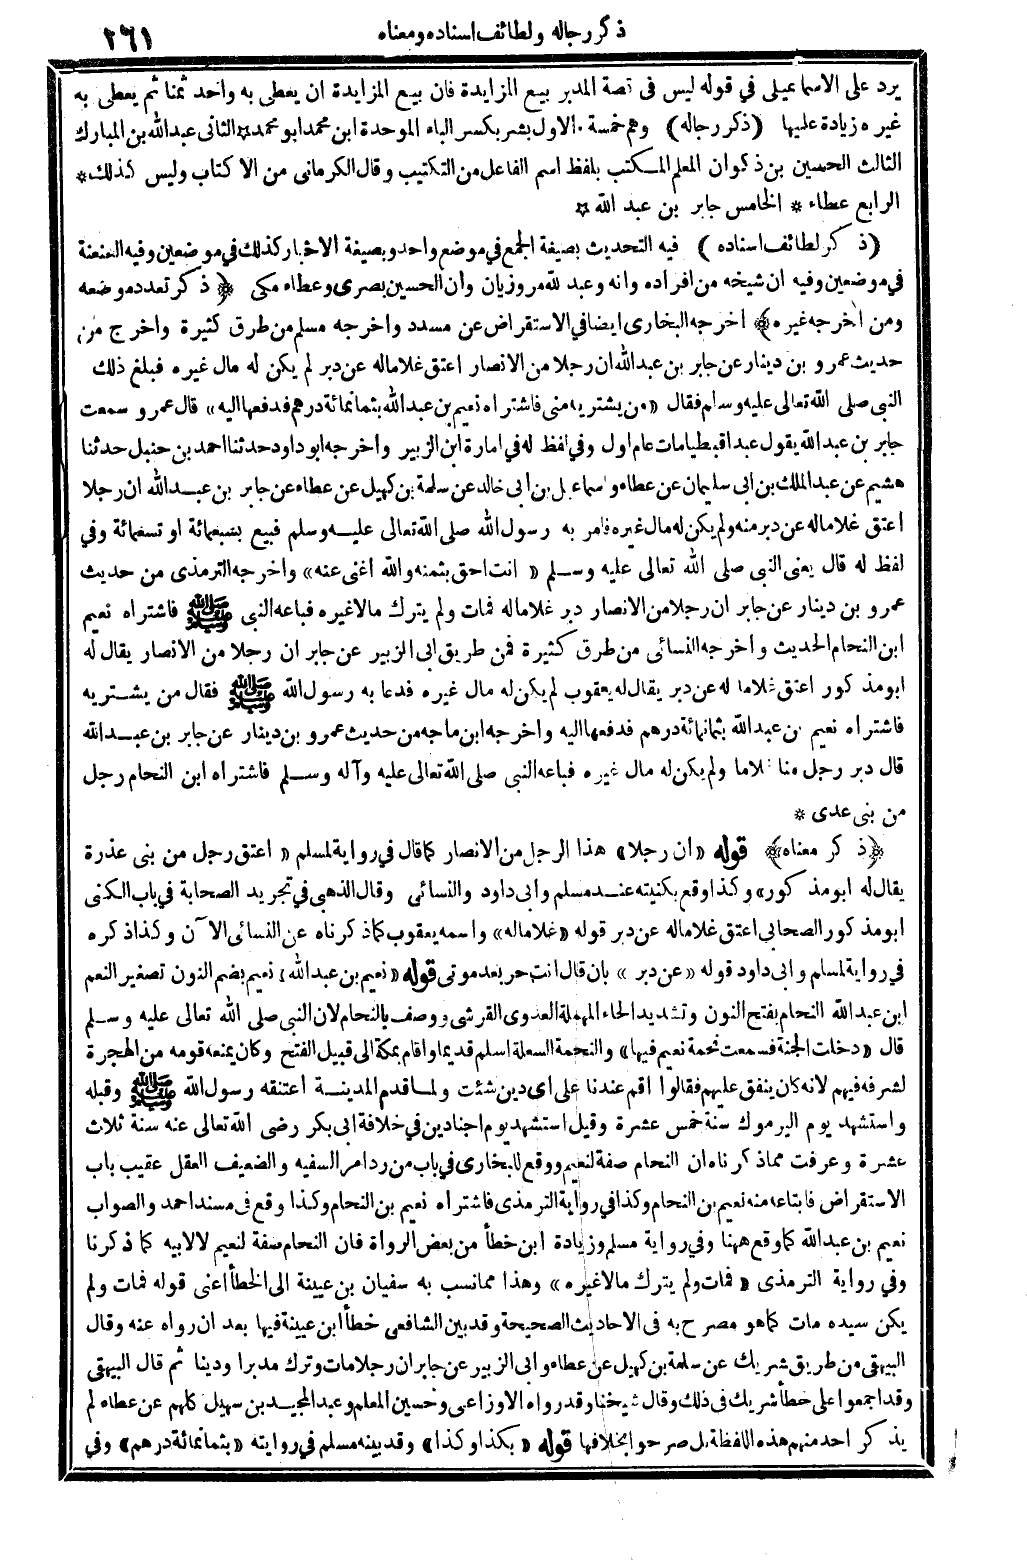 ذكر رجاله ولطائف اسناده ومعناه
٢٦١
يرد على الاسماعيلى في قوله ليس فى قصة المدبر بيع المزايدة فان بيع المزايدة ان يعطى به واحد ثمنا ثم يعطى به
غيره زيادة عليها (ذكر رجاله) وهم خمسة. الاول بشر بكسر الباء الموحدة ابن محمد ابو محمد * الثانى عبدالله بن المبارك
الثالث الحسين بن ذكوان المعلم المكتب بلفظ اسم الفاعل من التكتيب وقال الكرمانى من الاكتاب وليس كذلك *
الرابع عطاء * الخامس جابر بن عبد الله *
(ذكر لطائف اسناده) فيه التحديث بصيغة الجمع في موضع واحد وبصيغة الاخبار كذلك في موضعين وفيه العنعنة
في موضعين وفيه ان شيخه من افراده وانه وعبد لله مروزيان وأن الحسين بصرى وعطاء مكى ﴿ذكر تعدد موضعه
ومن أخرجه غيره﴾ أخرجه البخارى ايضا في الاستقراض عن مسدد واخرجه مسلم من طرق كثيرة واخرج من
حديث عمرو بن دينار عن جابر بن عبدالله ان رجلا من الانصار اعتق غلاما له عن دبر لم يكن له مال غيره فبلغ ذلك
النبى صلى الله تعالى عليه وسلم فقال «من يشتريه منى فاشتراه نعيم بن عبدالله بثمانمائة درهم فدفعها اليه» قال عمرو سمعت
جابر بن عبدالله يقول عبدا قبطيا مات عام اول وفي لفظ له في امارة ابن الزبير واخرجه ابو داود حدثنا احمد بن حنبل حدثنا
هشيم عن عبدالملك بن ابى سليمان عن عطاء واسماعيل بن ابى خالد عن سلمة بن كهيل عن عطاء عن جابر بن عبدالله ان رجلا
اعتق غلاما له عن دبر منه ولم يكن له مال غيره فامر به رسول الله صلى الله تعالى عليه وسلم فبيع بسبعمائة او تسعمائة وفي
لفظ له قال يعنى النبى صلى الله تعالى عليه وسلم «انت احق بثمنه والله أغنى عنه» واخرجه الترمذى من حديث
عمرو بن دينار عن جابر ان رجلا من الانصار دبر غلاما له فمات ولم يترك مالا غيره فباعه النبى ﷺ فاشتراه نعيم
ابن النحام الحديث واخرجه النسائى من طرق كثيرة فمن طريق ابى الزبير عن جابر ان رجلا من الانصار يقال له
ابومذكور اعتق غلاما له عن دبر يقال له يعقوب لم يكن له مال غيره فدعا به رسول الله ﷺ فقال من يشتريه
فاشتراه نعيم بن عبدالله بثمانمائة درهم فدفعها اليه واخرجه ابن ماجه من حديث عمرو بن دينار عن جابر بن عبدالله
قال دبر رجل منا غلاما ولم يكن له مال غيره فباعه النبى صلى الله تعالى عليه وآله وسلم فاشتراه ابن النحام رجل
من بنى عدى *
﴿ذكر معناه﴾ قوله «ان رجلا» هذا الرجل من الانصار كما قال في رواية لمسلم «اعتق رجل من بنى عذرة
يقال له ابومذكور» وكذا وقع بكنيته عند مسلم وابى داود والنسائى وقال الذهبى في تجريد الصحابة في باب الكنى
ابومذكور الصحابى اعتق غلاما له عن دبر قوله «غلاما له» واسمه يعقوب كما ذكرناه عن النسائى الآن وكذا ذكره
في رواية لمسلم وابى داود قوله «عن دبر» بان قال انت حر بعد موتى قوله «نعيم بن عبدالله» نعيم بضم النون تصغير النعم
ابن عبدالله النحام بفتح النون وتشديد الحاء المهملة العدوى القرشى ووصف بالنحام لان النبى صلى الله تعالى عليه وسلم
قال «دخلت الجنة فسمعت نحمة نعيم فيها» والنحمة السعلة اسلم قديما واقام بمكة الى قبيل الفتح وكان يمنعه قومه من الهجرة
لشرفه فيهم لانه كان ينفق عليهم فقالوا اقم عندنا على اى دين شئت ولما قدم المدينة اعتنقه رسول الله ﷺ وقبله
واستشهد يوم اليرموك سنة خمس عشرة وقيل استشهد يوم اجنادين في خلافة ابى بكر رضى الله تعالى عنه سنة ثلاث
عشرة وعرفت مما ذكرناه ان النحام صفة لنعيم ووقع للبخارى في باب من رد امر السفيه والضعيف العقل عقيب باب
الاستقراض فابتاعه منه نعيم بن النحام وكذا في رواية الترمذى فاشتراه نعيم بن النحام وكذا وقع فى مسند احمد والصواب
نعيم بن عبدالله كما وقع ههنا وفي رواية مسلم وزيادة ابن خطأ من بعض الرواة فان النحام صفة لنعيم لا لابيه كما ذكرنا
وفي رواية الترمذى «فمات ولم يترك مالا غيره» وهذا مما نسب به سفيان بن عيينة الى الخطأ اعنى قوله فمات ولم
يكن سيده مات كما هو مصرح به فى الاحاديث الصحيحة وقد بين الشافعى خطأ ابن عيينة فيها بعد ان رواه عنه وقال
البيهقى من طريق شريك عن سلمة بن كهيل عن عطاء وابى الزبير عن جابر ان رجلا مات وترك مدبرا ودينا ثم قال البيهقى
وقد اجمعوا على خطأ شريك في ذلك وقال شيخنا وقد رواه الاوزاعى وحسين المعلم وعبدالمجيد بن سهيل كلهم عن عطاء لم
يذكر احد منهم هذه اللفظة بل صرحوا بخلافها قوله «بكذا وكذا» وقد بينه مسلم في روايته «بثمانمائة درهم» وفي